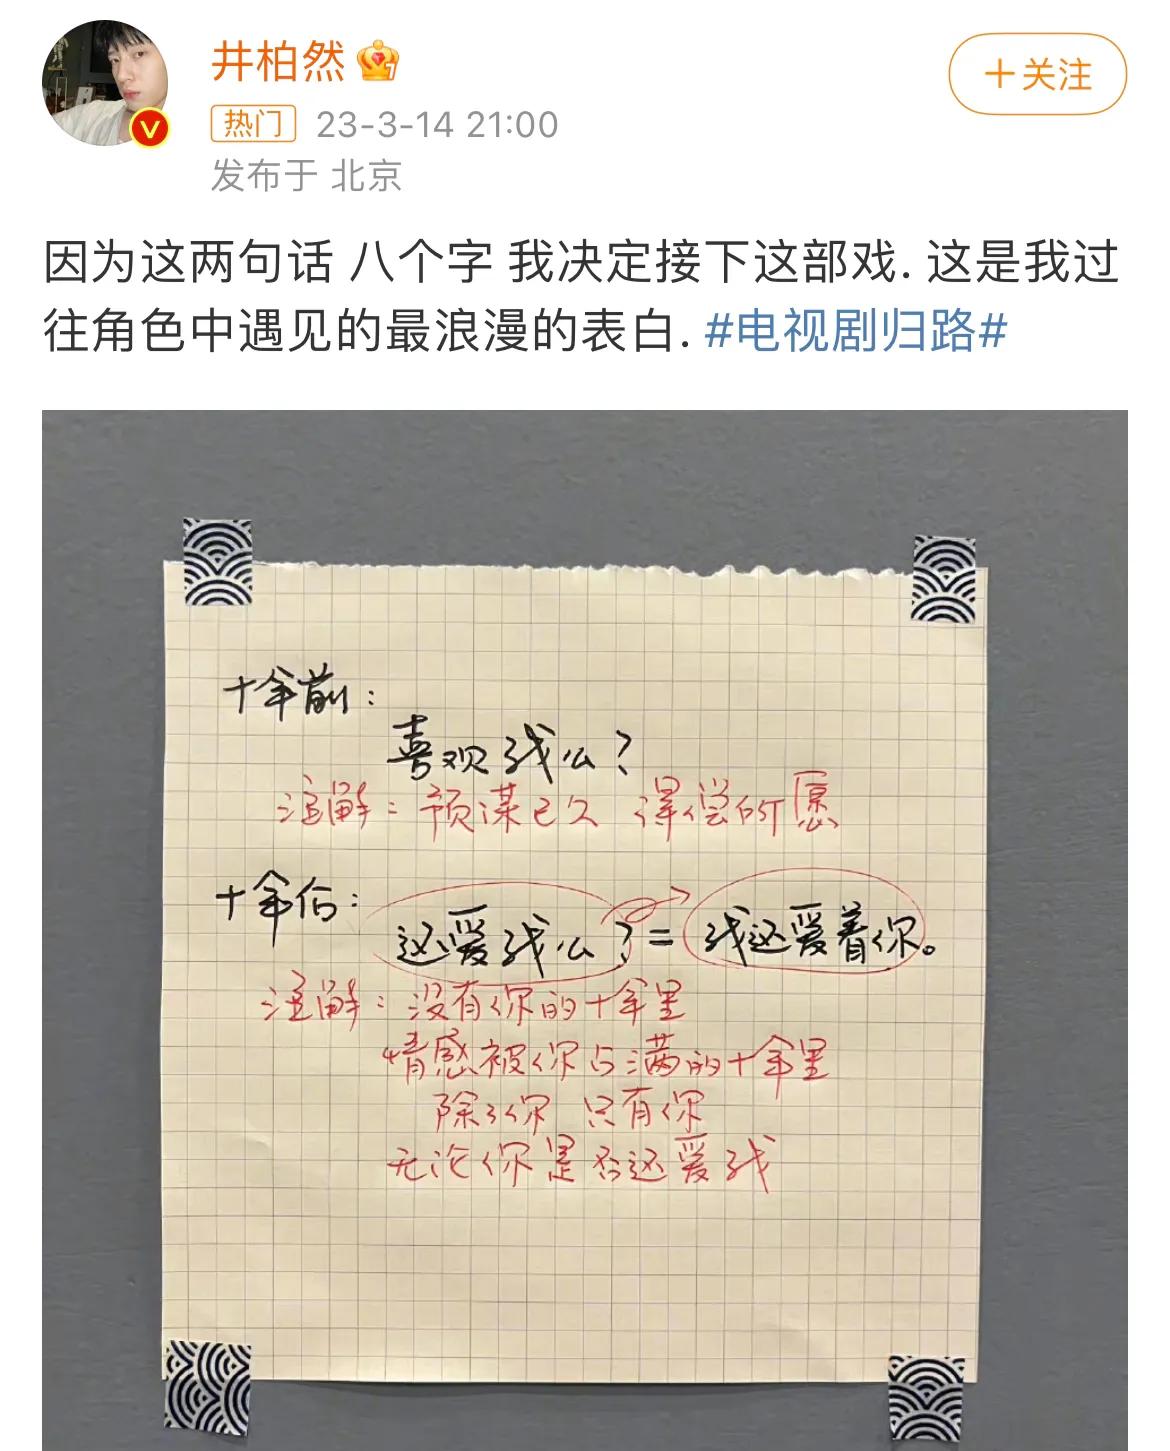 井柏然
+关注
热门 23-3-14 21:00
发布于 北京
因为这两句话 八个字 我决定接下这部戏. 这是我过
往角色中遇见的最浪漫的表白. #电视剧归路#
十年前：
喜欢我么？
注解：预谋已久 得偿所愿
十年后：
还爱我么？= 我还爱着你。
注解：没有你的十年里
情感被你占满的十年里
除了你 只有你
无论你是否还爱我